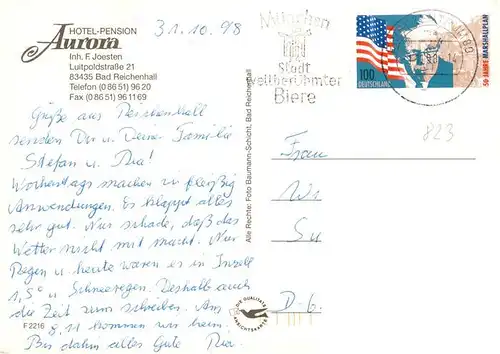 HOTEL-PENSION
Aurora
Inh. F. Joesten
Luitpoldstraße 21
83435 Bad Reichenhall
Telefon (0 86 51) 96 20
Fax (0 86 51) 96 11 69
31.10.98
Grüße aus Reichenhall
senden Dir u. Deiner Familie
Stefan u. Ria!
Wochentags machen wir fleißig
Anwendungen. Es klappt alles
sehr gut. Nur schade, daß das
Wetter nicht mit macht. Nur
Regen u. heute waren es in Inzell
1,5° u. Schneeregen. Deshalb auch
die Zeit zum schreiben. Am
8.11 kommen wir heim.
Bis dahin alles Gute Ria.
F 2216
Alle Rechte: Foto Baumann-Schicht, Bad Reichenhall
DIE QUALITÄTS
ANSICHTSKARTE
München
Stadt
weltberühmter
Biere
100
DEUTSCHLAND
50 JAHRE MARSHALLPLAN
823
Frau
Wi
Su
D-6